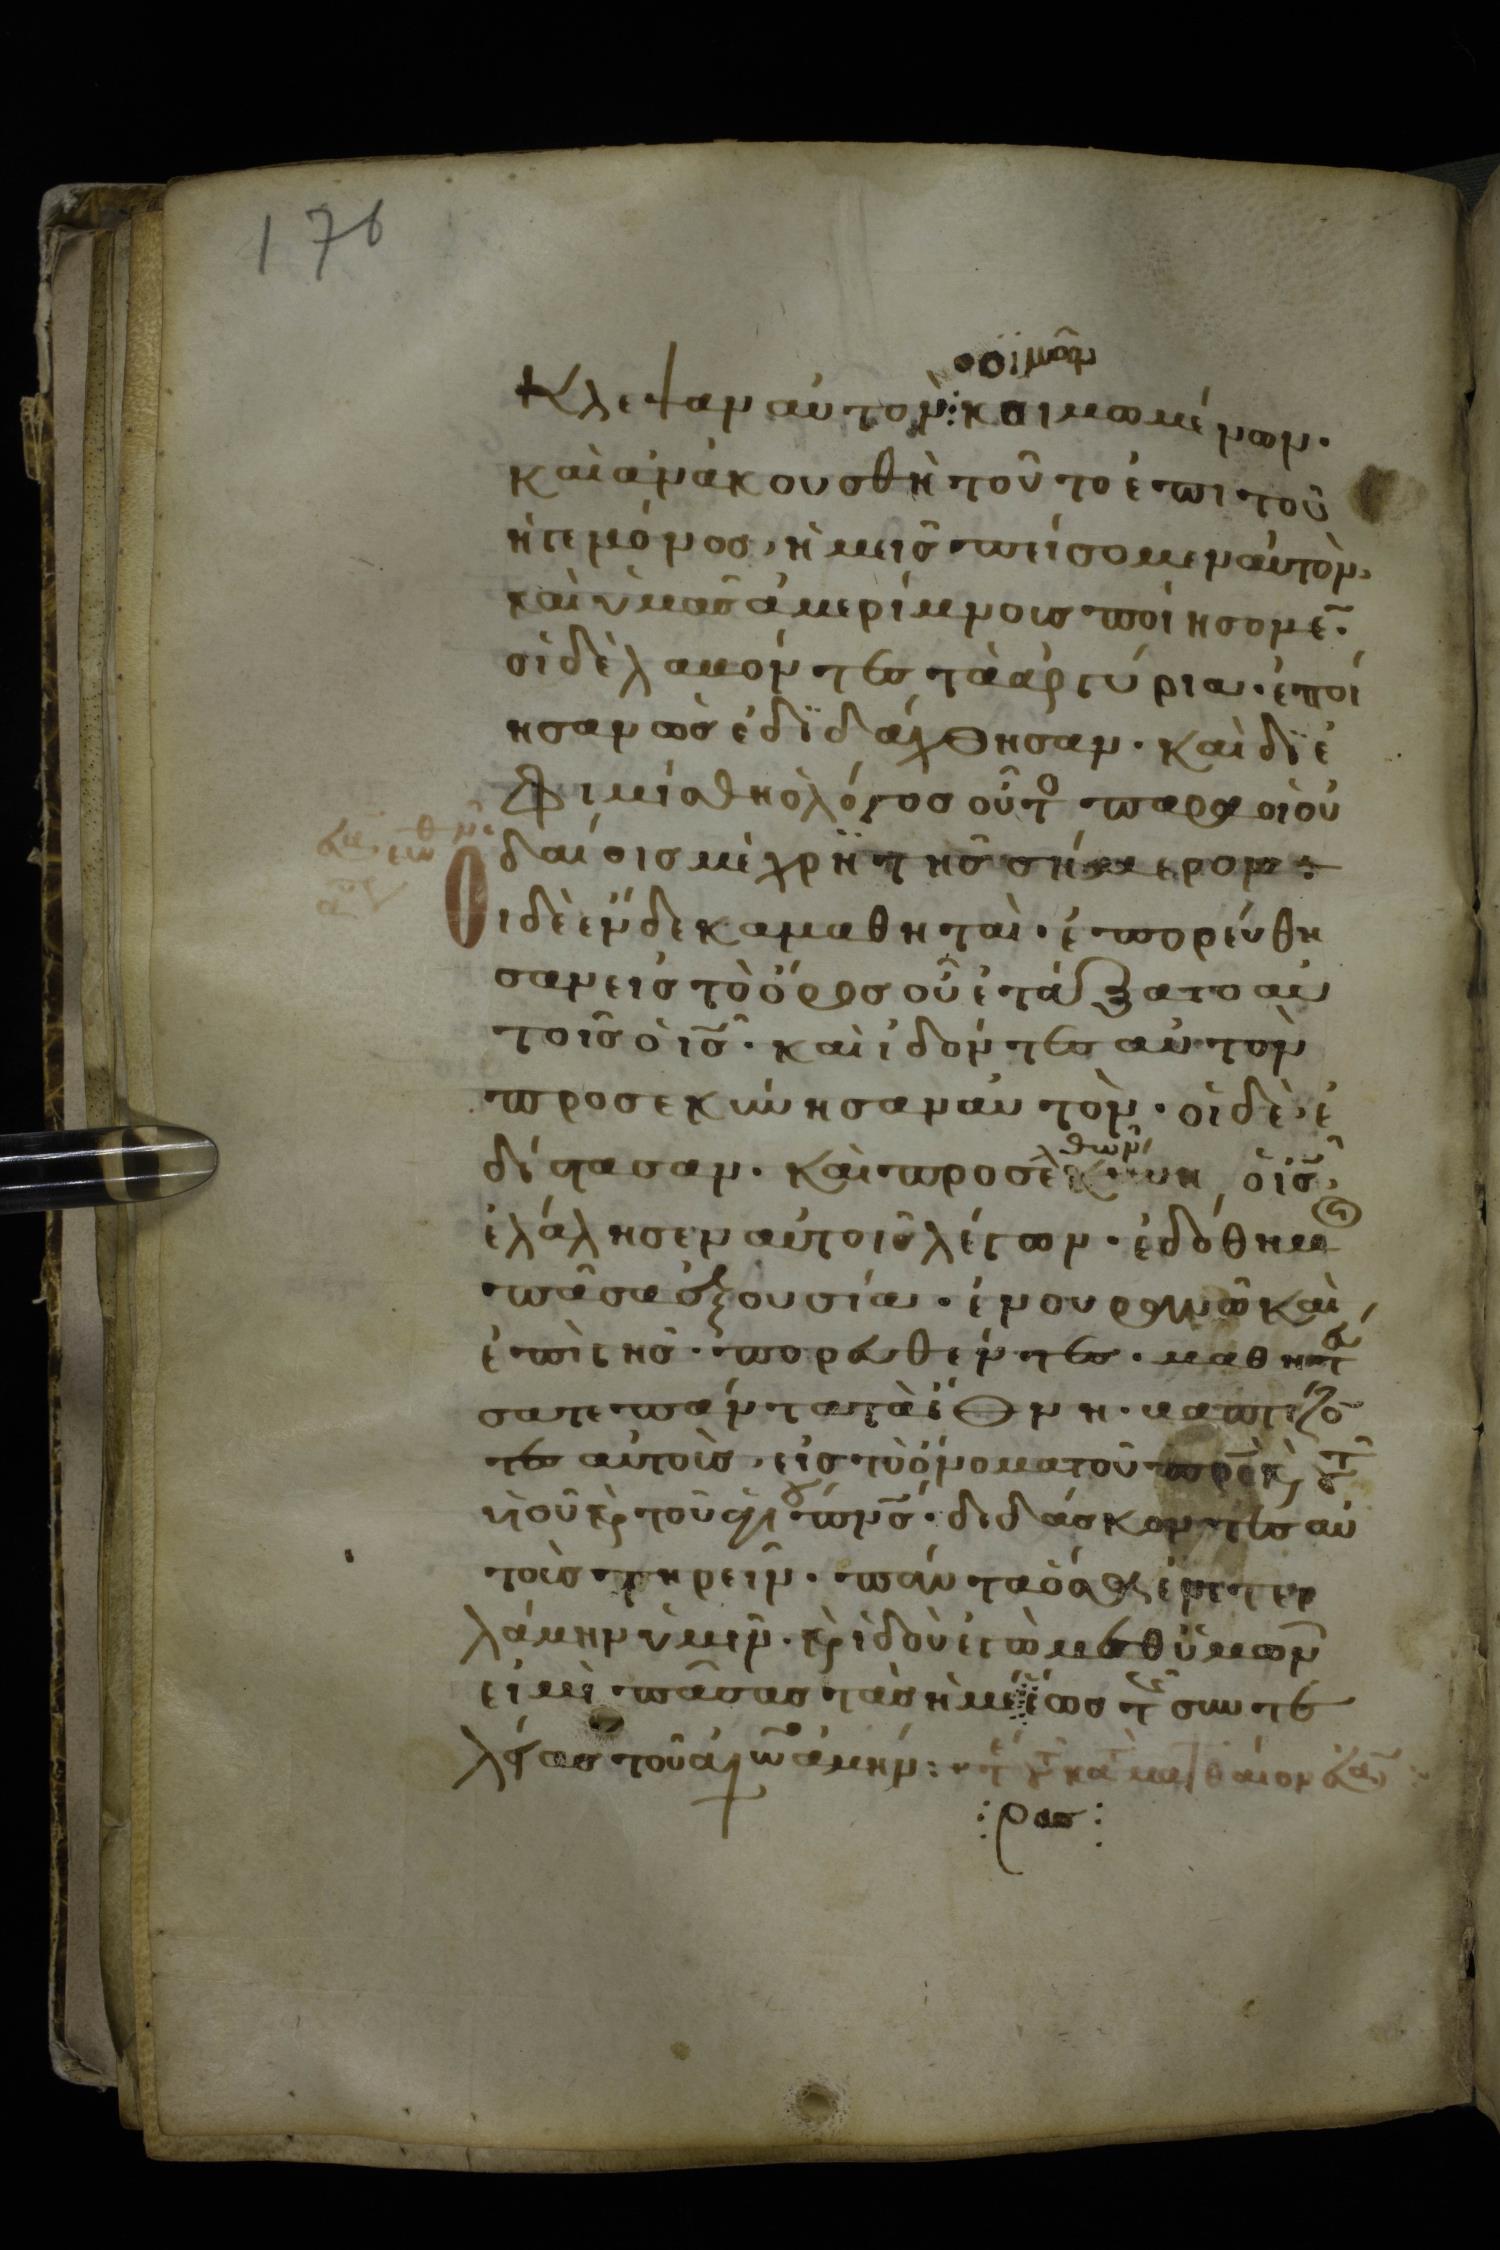 176
κλεψαν αὐτὸν· κοιμωμένων·
καὶ ἀν ἀκουσθῆ τοῦτο ἐπι τοῦ
ἡγεμόνος, ἡμεῖς πείσομεν αὐτὸν,
καὶ ὑμᾶς ἀμερίμνους ποιήσομε̄·
οἱ δὲ λαβόντες τὰ ἀργύρια· ἐποί
ησαν ὡς ἐδϊδάχθησαν· καὶ δϊε
φιμίσθη ὁ λόγος οὗτο παρα ϊου
δαίοις μέχρϊ τῆς σήμερον:
Οι δὲ ἕνδεκα μαθηταὶ· ἐπορεύθη
σαν εις τὸ ὄρος οὗ ἐτάξατο αυ
τοῖς ὁ ις̄· καὶ ἰδόντες αὐτον
προσεκύνησαν αὐτὸν· οἱ δὲ ἐ
δίστασαν· καὶ προσελθων ὁ ις̄,
ἐλάλησεν αὐτοῖς λέγων· ἐδόθη μοι
πᾶσα ἐξουσία· ἐν ουρανῶ καὶ
ἐπὶ γῆς· πορευθέντες· μαθητεύ
σατε πάντα τὰ ἔθνη· βαπτίζο̄
τες αὐτοὺς, εἰς τὸ ὄνομα τοῦ πρ̄ς κ, τ
υἱοῦ κ, τοῦ ἁγίου πν̄ς· διδάσκοντες αὐ
τοὺς τηρεῖν· πάντα ὅσα ἐνετει
λάμην ὑμῖν· κ, ἰδοὺ ἐγὼ μεθ ὑμῶν
εἰμὶ πάσας τὰς ἡμέρας ἕως τῆς συντε
λείας τοῦ αἰῶνος ἀμήν: